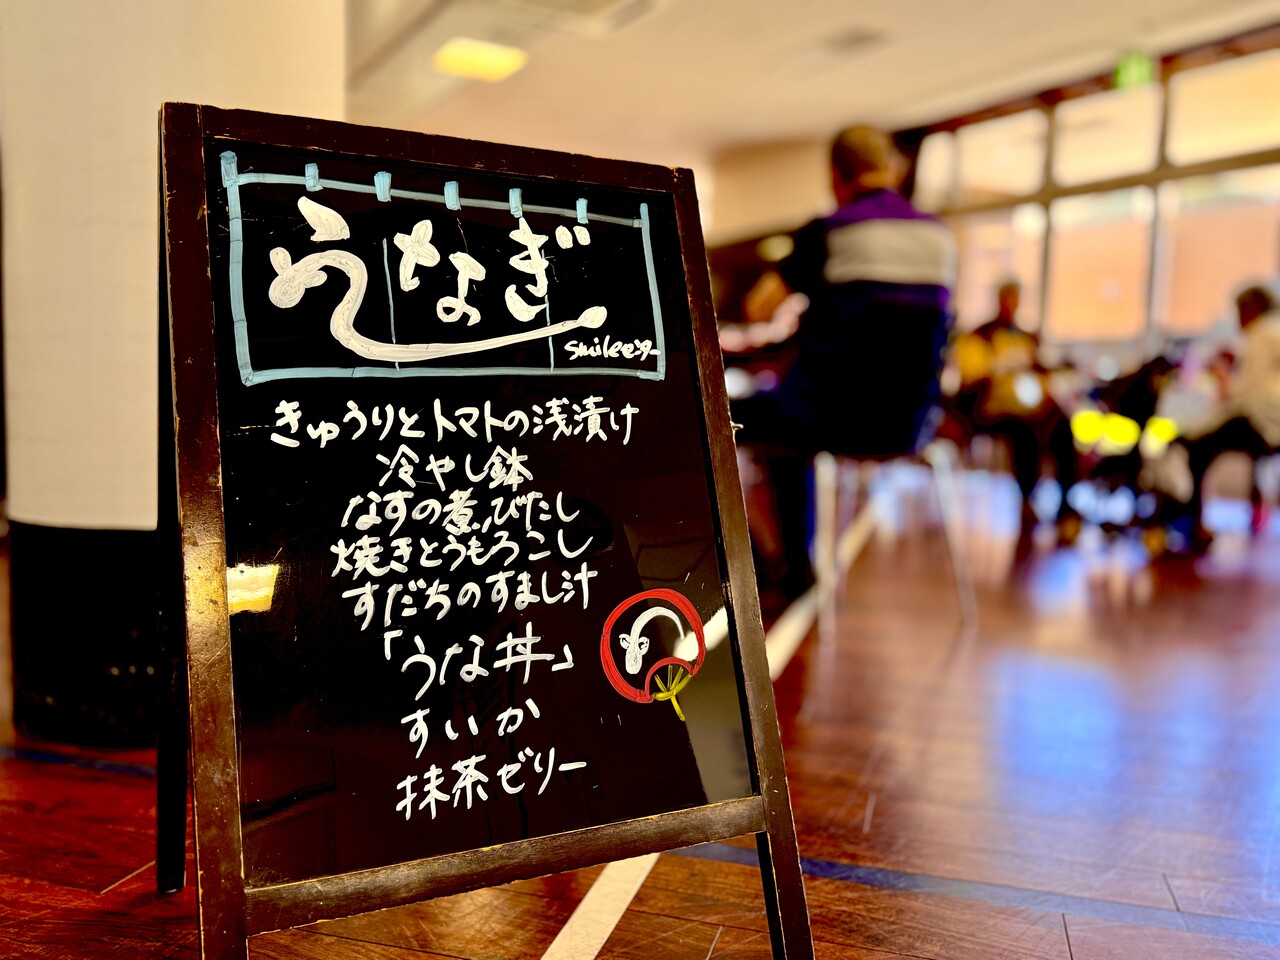 うなぎ
smileセンター
きゅうりとトマトの浅漬け
冷やし鉢
なすの煮びたし
焼きとうもろこし
すだちのすまし汁
「うな丼」
すいか
抹茶ゼリー